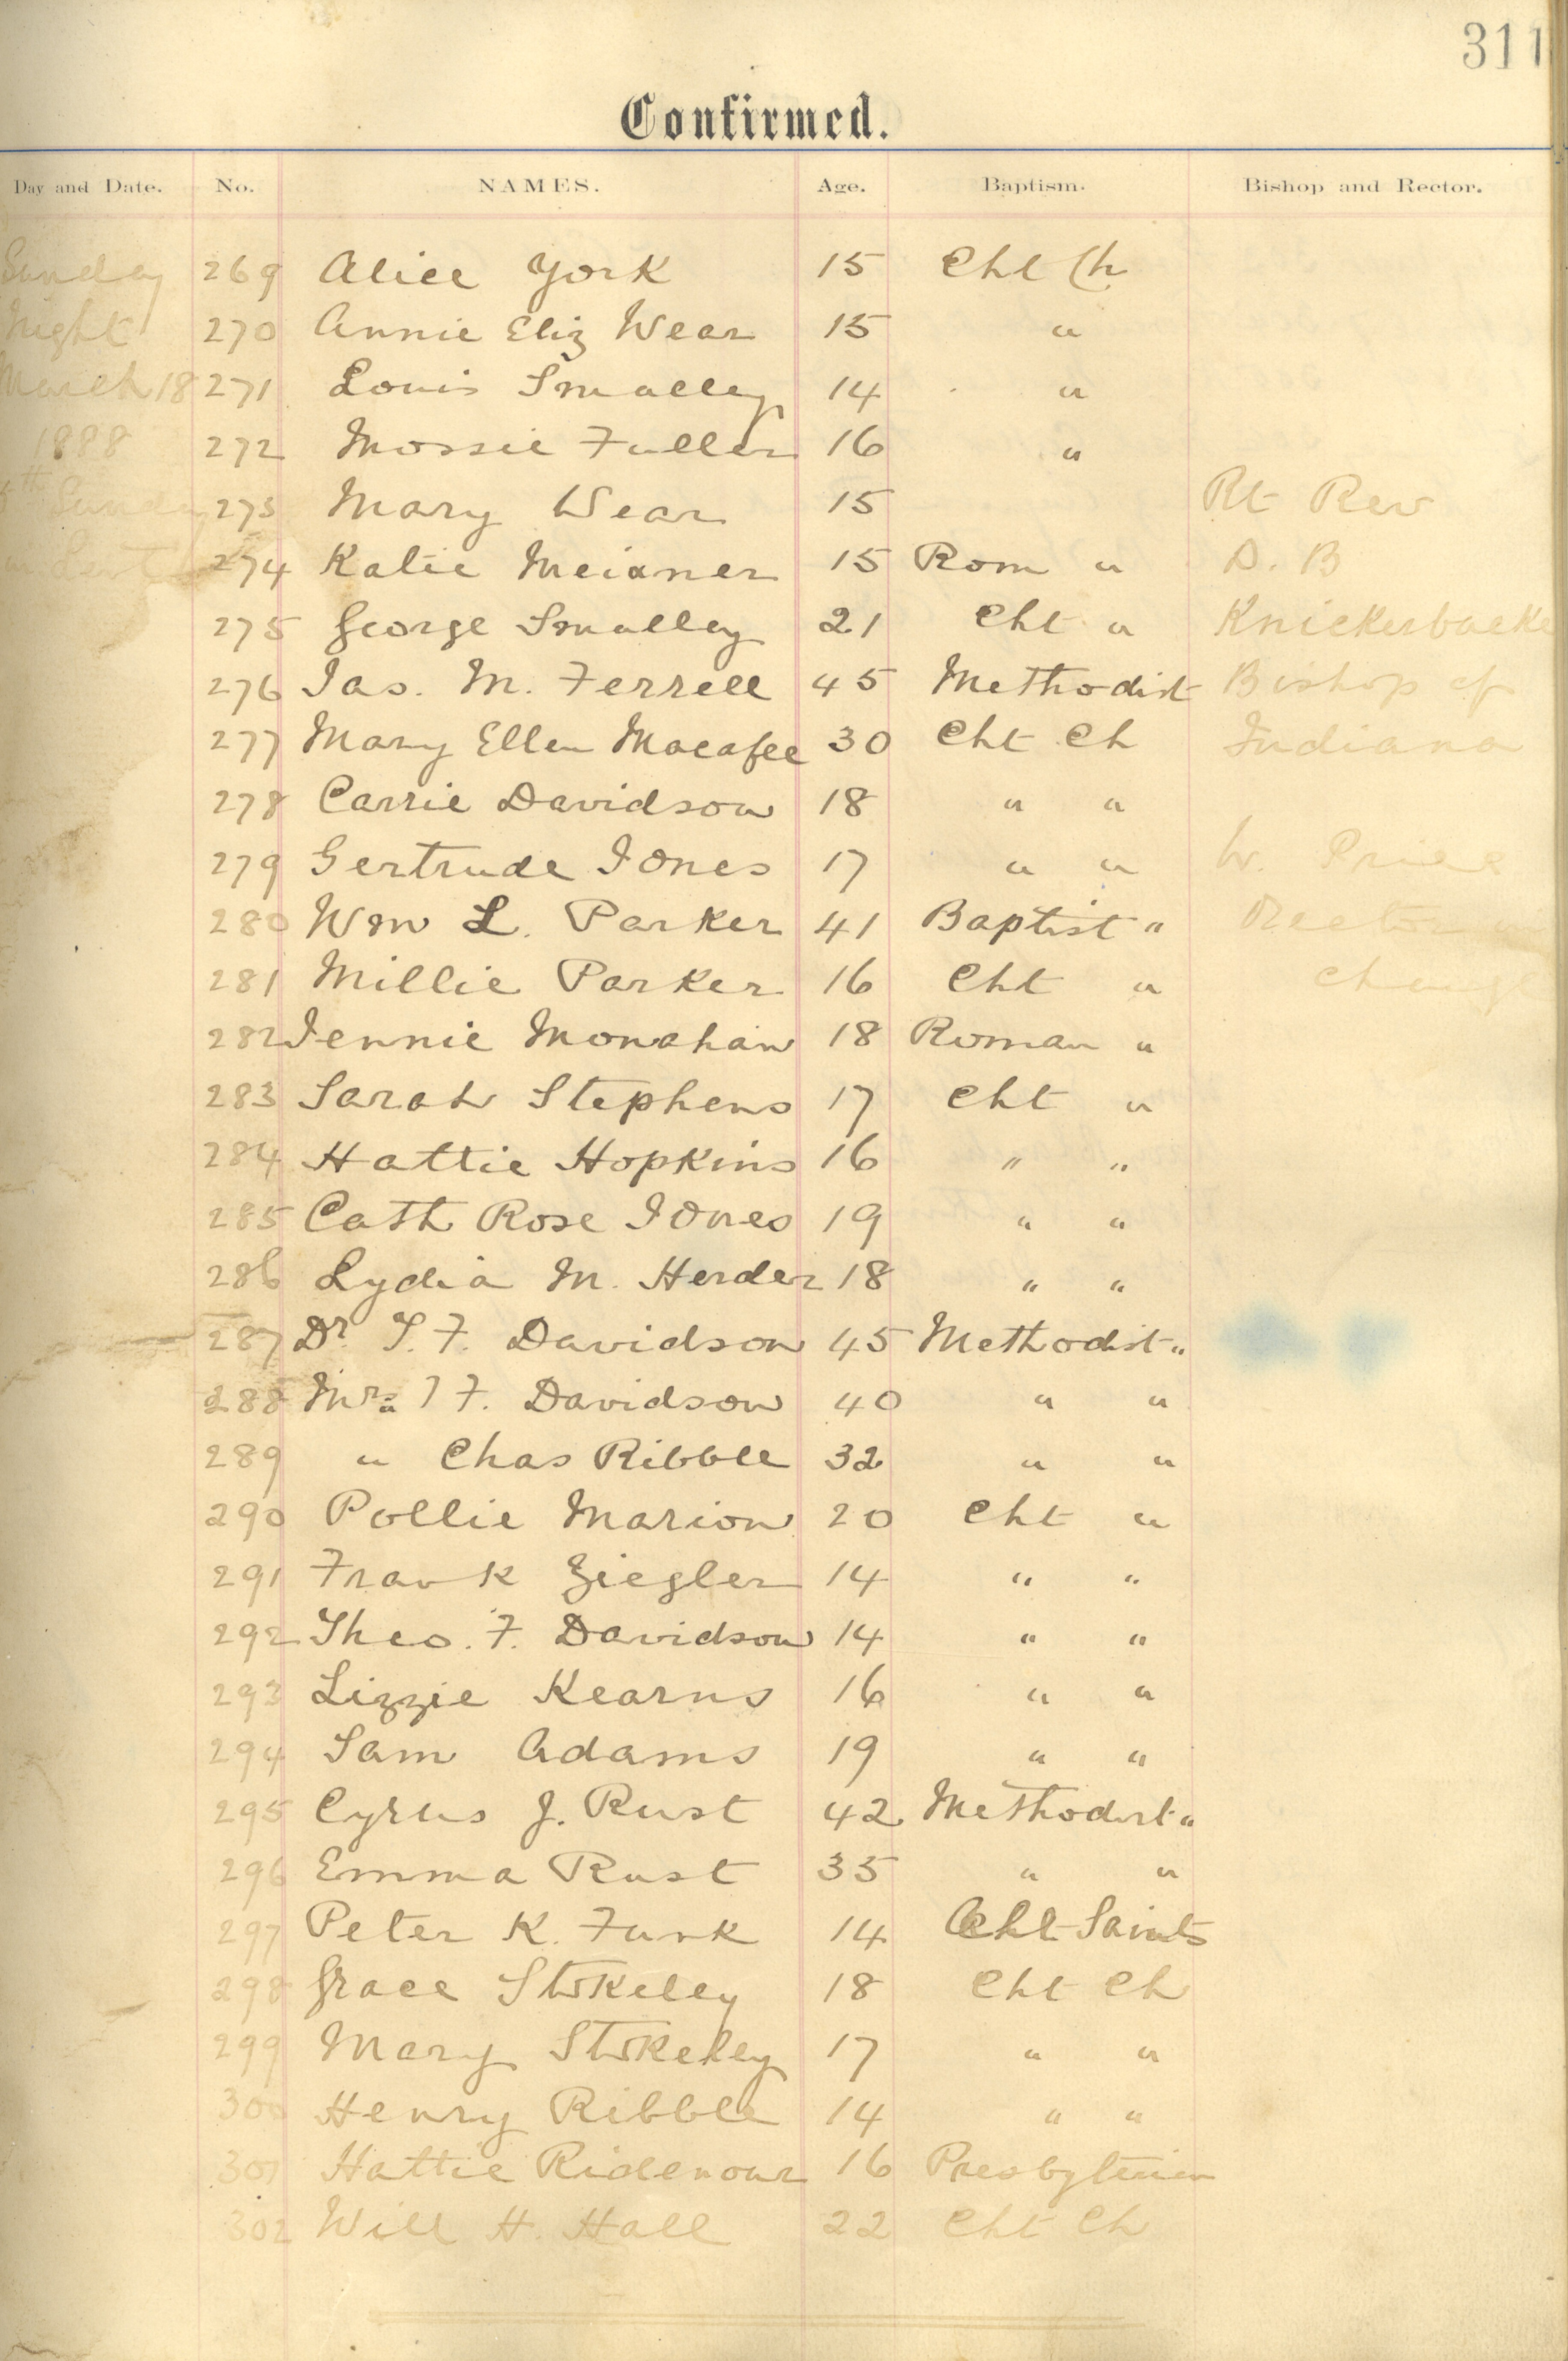 311
Confirmed.
Day and Date. No. NAMES. Age. Baptism. Bishop and Rector.
Sunday 269 Alice York 15 Cht Ch
Night 270 Annie Eliz Wear 15 "
March 18 271 Louis Smalley 14 "
1888 272 Mossie Fuller 16 "
5th Sunday 273 Mary Wear 15 Rt Rev
in Lent 274 Katie Meixner 15 Rom " D. B
275 George Smalley 21 Cht " Knickerbacke
276 Jas. M. Ferrell 45 Methodist Bishop of
277 Mary Ellen Macafee 30 Cht Ch Indiana
278 Carrie Davidson 18 " "
279 Gertrude Jones 17 " " Price
280 Wm L. Parker 41 Baptist " Rector
281 Millie Parker 16 Cht "
282 Jennie Monahan 18 Roman "
283 Sarah Stephens 17 Cht "
284 Hattie Hopkins 16 " "
285 Cath Rose Jones 19 " "
286 Lydia M. Herder 18 " "
287 Dr T. F. Davidson 45 Methodist "
288 Mrs T F. Davidson 40 " "
289 " Chas Ribble 32 " "
290 Pollie Marion 20 Cht "
291 Frank Ziegler 14 " "
292 Theo. F. Davidson 14 " "
293 Lizzie Kearns 16 " "
294 Sam Adams 19 " "
295 Cyrus J. Rust 42 Methodist "
296 Emma Rust 35 " "
297 Peter K. Funk 14 Saints
298 Grace Stokeley 18 Cht Ch
299 Mary Stokeley 17 " "
300 Henry Ribble 14 " "
301 Hattie Ridenour 16 Presbyterian
302 Will H. Hall 22 Cht Ch